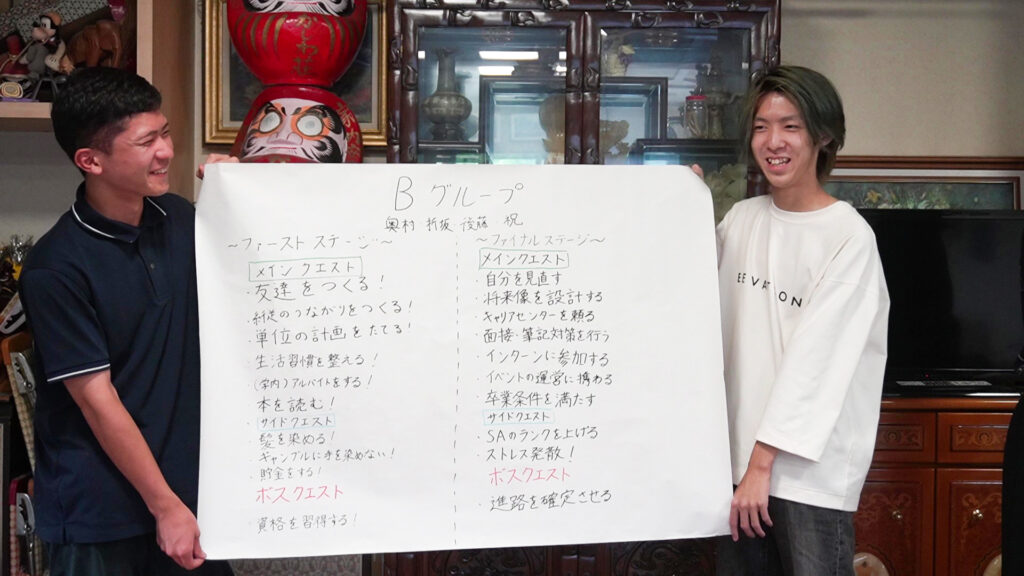 Bグループ
奥村 折坂 後藤 祝
～ファースト ステージ～
メインクエスト
・友達をつくる！
・縦のつながりをつくる！
・単位の計画をたてる！
・生活習慣を整える！
・(学内)アルバイトをする！
・本を読む！
サイドクエスト
・髪を染める！
・ギャンブルに手を染めない！
・貯金をする！
ボスクエスト
・資格を習得する！
～ファイナルステージ～
メインクエスト
・自分を見直す
・将来像を設計する
・キャリアセンターを頼る
・面接・筆記対策を行う
・インターンに参加する
・イベントの運営に携わる
・卒業条件を満たす
サイドクエスト
・SAのランクを上げる
・ストレス発散！
ボスクエスト
・進路を確定させる